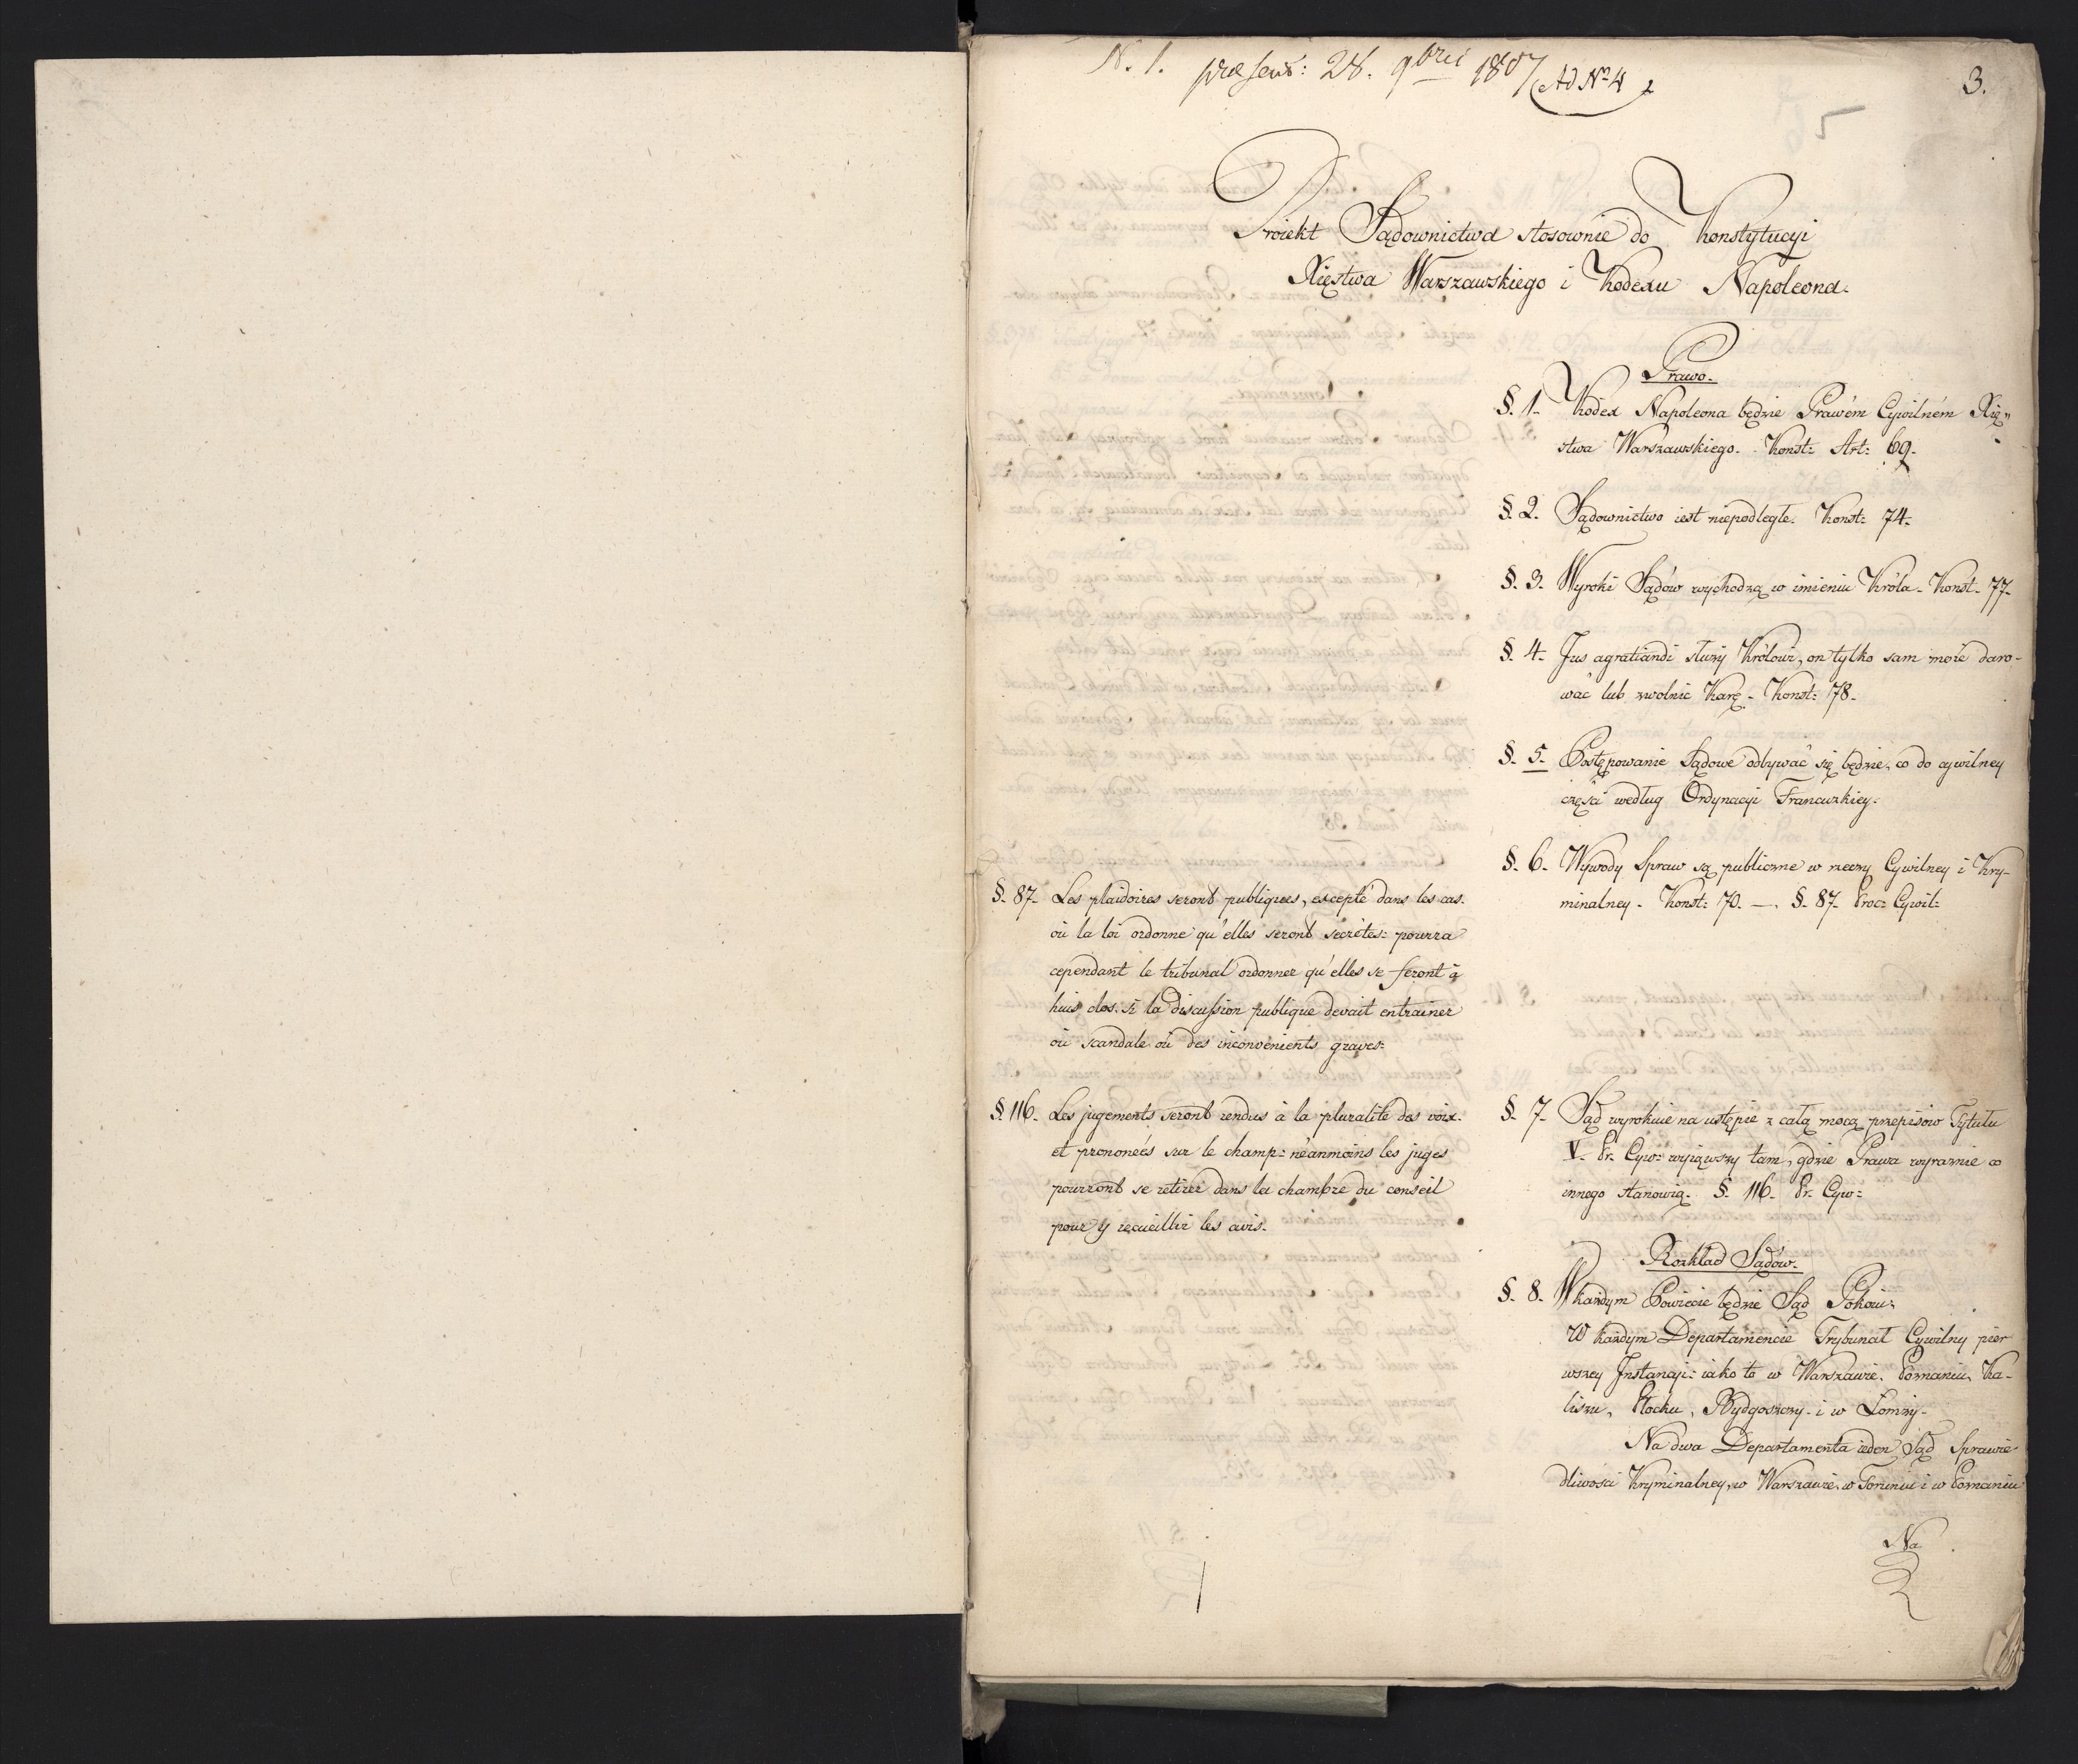 N. 1. praesent: 28. 9bris 1807 Ad No 4
3.
5
Proiekt Sądownictwa stosownie do Konstytucyi
Xięstwa Warszawskiego i Kodexu Napoleona.
Prawo.
§. 1. Kodex Napoleona będzie Prawem Cywilném Xię„
stwa Warszawskiego. Konst: Art: 69.
§. 2. Sądownictwo iest niepodległe. Konst: 74.
§. 3. Wyroki Sądów wychodzą w imieniu Króla. Konst. 77.
§. 4. Jus agratiandi służy Królowi, on tylko sam może daro-
wać lub zwolnic Karę. Konst: 78.
§. 5. Postępowanie Sądowe odbywać się będzie, co do cywilney
części według Ordynacyi Francuzkiey.
§. 6. Wywody Spraw są publiczne w rzeczy Cywilney i Kry-
minalney. Konst: 70. —. §. 87. Proc: Cywil:
§. 87. Les plaidoires seront publiques, excepté dans les cas.
où la loi ordonne qu'elles seront secrétes: pourra
cependant le tribunal ordonner qu'elles se feront à
huis clos. si la discussion publique devait entrainer
où scandale où des inconvenients graves:
§. 116. Les jugements seront rendus à la pluralité des voix.
et prononcés sur le champ: néanmoins les juges
pourront se retirer dans la chambre du conseil
pour y recueillir les avis.
§. 7. Sąd wyrokuie na ustępie z całą mocą przepisow Tytułu
V. Pr. Cyw: wyiąwszy tam, gdzie Prawa wyraznie co
innego stanowią. §. 116. Pr. Cyw:
Rozkład Sądów.
§. 8. W każdym Powiecie będzie Sąd Pokoiu.
W każdym Departamencie Trybunał Cywilny pier
wszey Instancyi: iako to w Warszawie, Poznaniu, Ka-
liszu, Płocku, Bydgoszczy. i w Łomży.
Na dwa Departamenta ieden Sąd Sprawie
dliwosci Kryminalney, w Warszawie, w Toruniu i w Poznaniu
Na